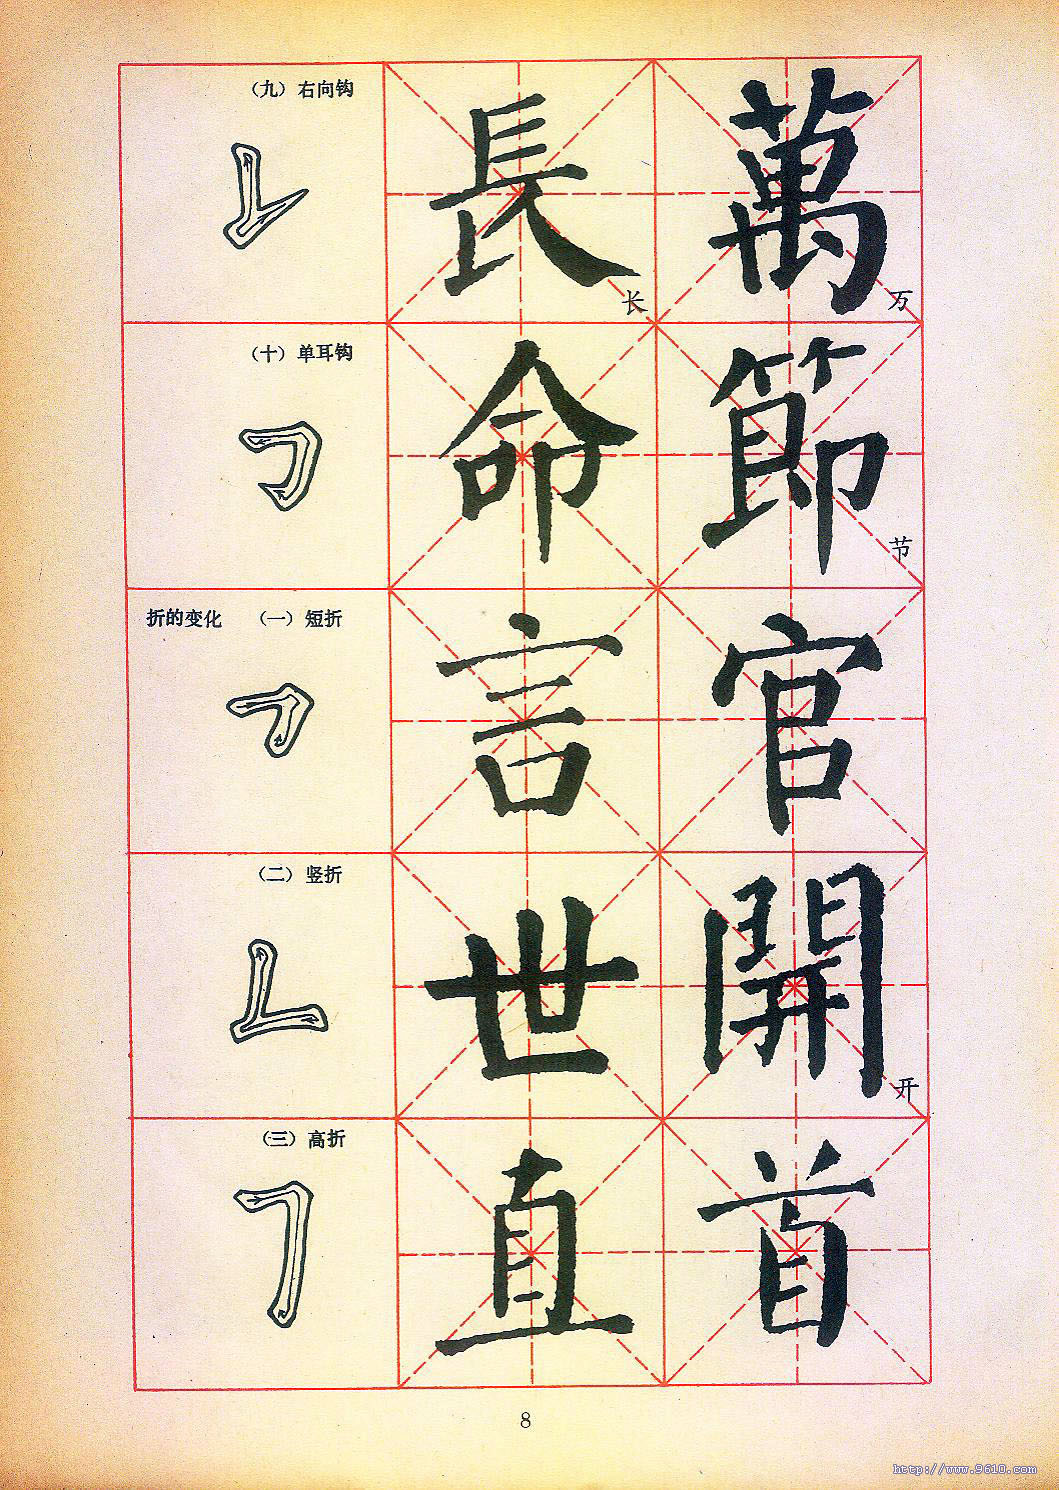 （九）右向钩
長 长 萬 万
（十）单耳钩
命 節 节
折的变化 （一）短折
言 官
（二）竖折
世 開 开
（三）高折
直 首
8
http://www.9610.com